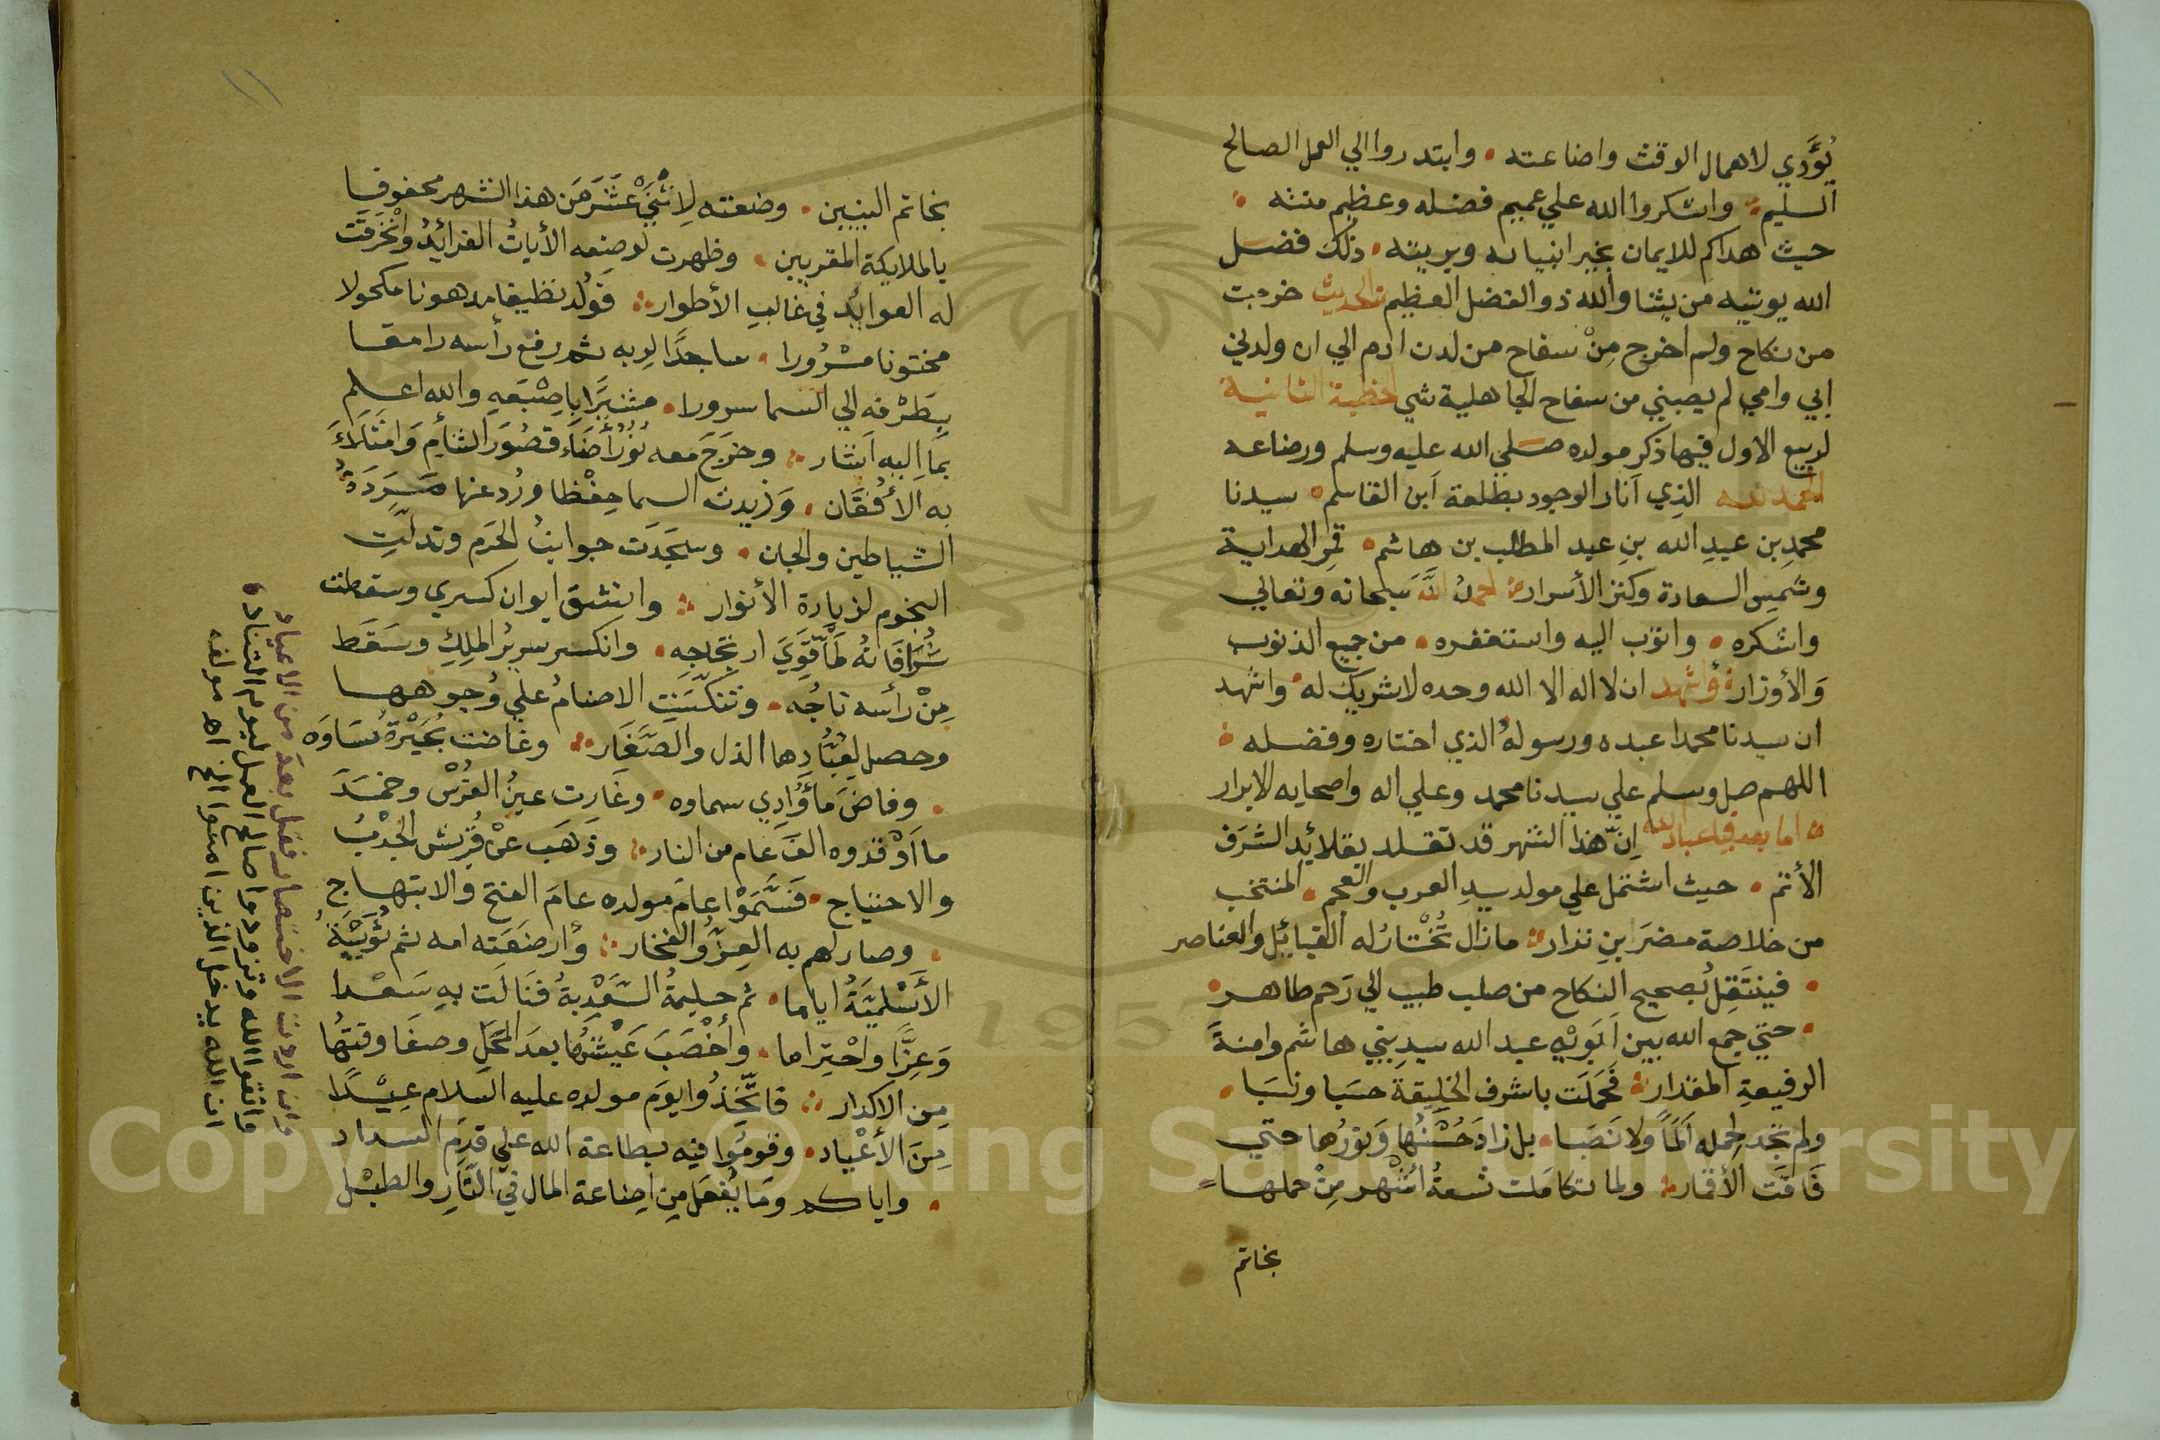 يُؤَدي لاهمال الوقت واضاعته • وابتدروا الي العمل الصالح
السليم • واشكروا الله علي عميم فضله وعظيم مننه •
حيث هداكم للايمان بخير انبيائه وبريته • ذلك فضل
الله يوتيه من يشا والله ذو الفضل العظيم الحديث خرجت
من نكاح ولم اخرج مِنْ سفاح من لدن ادم الي ان ولدني
ابي وامي لم يصبني من سفاح الجاهلية شي الخطبة الثانية
لربيع الاول فيها ذكر مولده صلي الله عليه وسلم ورضاعه
الحمد لله الذِي اَنار الوجود بطلعة اَبن القاسم • سيدنا
محمدِ بن عبدِ الله بنِ عبد المطلب بن هاشم • قمِر الهداية
وشمسِ السعادة وكنز الأسرار • احمدُ اللَّهَ سبحانه وتعالي
واشكره • واتوب اليه واستغفره • من جميع الذنوب
وَالأوزار • وأشهد ان لا اله الا الله وحده لا شريك له • واشهد
ان سيدنا محمدا عبده ورسولهُ الذي اختاره وفضله •
اللهم صل وسلم علي سيدنا محمد وعلي اله واصحابه الابرار
• اما بعد فيا عباد الله اِنّ هذا الشهر قد تقلد بقلائد الشرَف
الأتم • حيث اشتمل علي مولد سيدِ العرب والعجم • المنتخب
من خلاصة مضرَ ابنِ نزار • ما زال تُخْتارُ له القبائِل والعناصر
• فينتَقِلُ بصحيح النكاح من صلب طيب الي رَحم طاهر •
• حتي جمع الله بين اَبَويْهِ عبد الله سيدِ بني هاشم وامنةَ
الرفيعةِ المقدار • فحَمَلَت باشرف الخليقة حسَبا ونسَبا •
ولم تجد لحمله اَلمَاً ولا نَصَبا • بل زادَ حُسْنُها وَنورُها حتي
فَاقَت الأقمار • ولما تكامَلت تسعةُ اشْهر مِنْ حملها
بخاتم
١١
بخاتم النبيين • وضعته لِاثْنَيْ عَشَرَ مَن هذا الشهر محفوفا
بالملايكة المقربين • وظهرت لوضعه الأياتُ الفرائدُ وانْخَرَقَت
له العوايدُ في غالبِ الأطوار • فَوُلد نظيفا مدهونا مكحولا
مختونا مسْرُورا • ساجدًا لربه ثم رفع رأسه رامقا
بِطَرْفه الي السما سرورا • مشيرًا بِاِصْبَعِهِ والله اعلم
بمَا اِليه اَشار • وخرَجَ معه نُورٌ أَضَاءَ قصُورَ الشأم وَامْتَلَاءَ
به الأُفُقَان • وَزيدت السما حِفْظا ورُد عنها مَرَدَةُ
الشياطين والجان • وسجَدَت جوانبُ الحَرم وتدلّتِ
النجوم لزيارة الأنوار • وانشق ايوان كسري وسقطت
شُرَافَاتُهُ لمَّا قَوِيَ ارتجَاجِه • وانكسر سريرُ الملِكِ وسَقَط
مِنْ رأسه تاجُه • وتنكّسَتِ الاصنامُ علي وُجوهها
وحصل لعُبَّادِها الذل والصَّغَار • وغاضت بُحَيْرَةُ سَاوَه
• وفاضَ مَأوَادِي سماوه • وغَارت عينُ الفُرْس وخمَدَ
ما اَوْقدوه الفَ عام من النار • وذهَب عنْ قُريش الجدْبُ
والاحتياج • فَسَّمَوْا عامَ مولده عامَ الفتح والابتهاج
• وصار لهم به العِزُّ والفخار • وأرضعَته امه ثم ثُوَيْبَةُ
الأَسْلميَّةُ اياما • ثم حليمةُ السَّعْدِيةُ فنَالَت بهِ سَعْدا
وَعِزًّا واحْتِراما • وأخْصَبَ عَيْشُها بعدَ المَحَلِ وصفَا وقتُها
مِن الاكدار • فاتَّخِذُوا يومَ مولده عليه السلام عِيْدًا
مِنَ الأعْياد • وقومُوا فيه بطاعة الله علي قدَمِ السداد
• واياكم ومَا يُفْعَل مِن اِضاعة المال في النَّارِ والطبْل
وان اردت الاختصار فقل بعد من الاعياد
واتقوا الله وتزودوا صالح العمل ليوم التناد •
ان الله يدخل الذين امنوا الخ اهـ مولفه
Copyright © King Saud University
1957